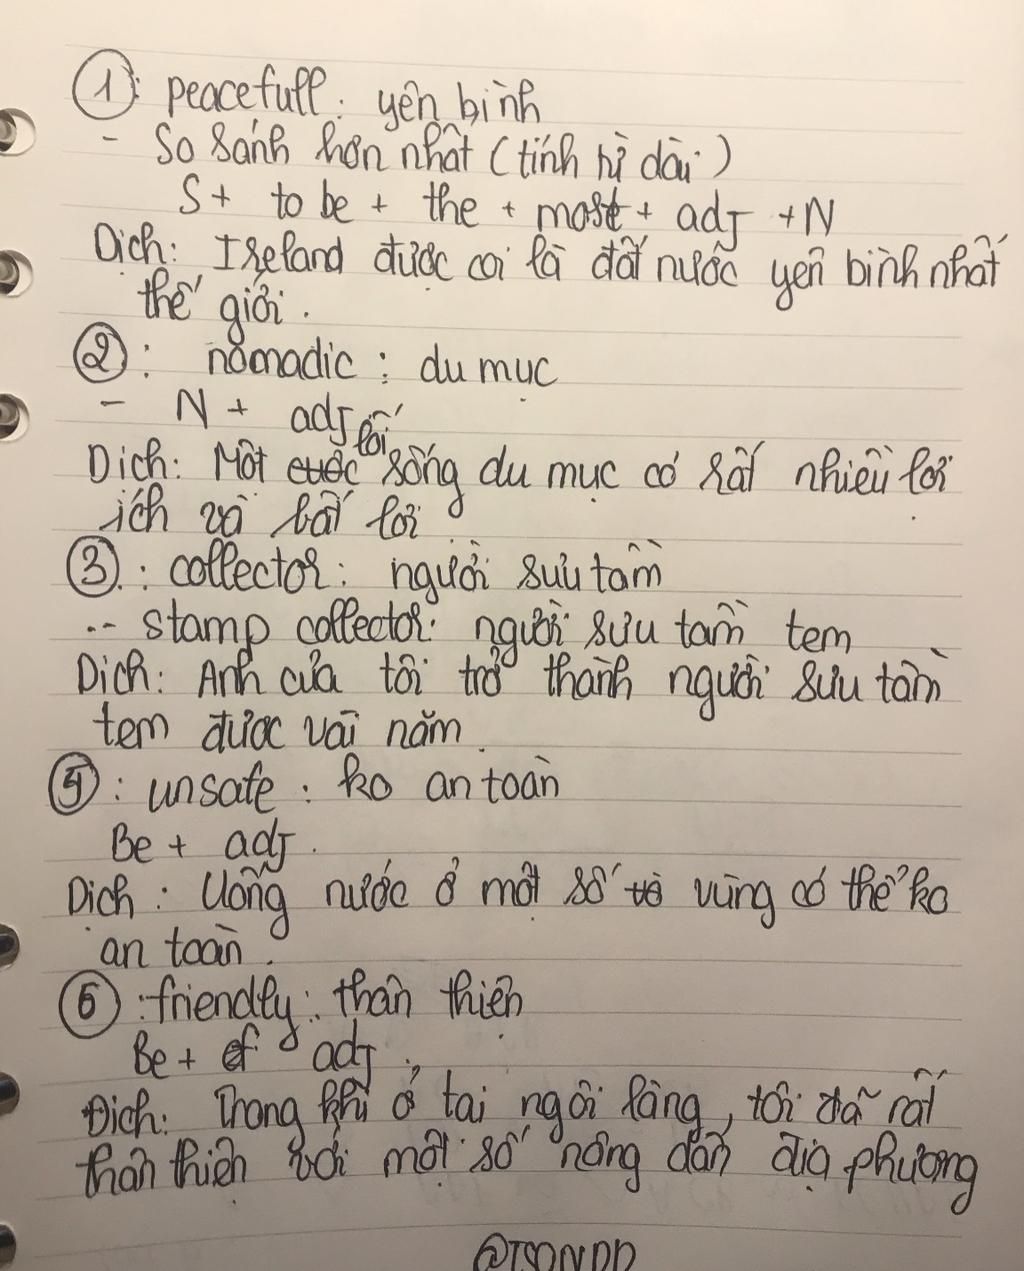 ①: peacefull: yên bình
- So sánh hơn nhất (tính từ dài)
S + to be + the + most + adj + N
Dịch: Ireland được coi là đất nước yên bình nhất
thế giới.
②: nomadic: du mục
- N + adj
Dịch: Một lối sống du mục có rất nhiều lợi
ích và bất lợi
③: collector: người sưu tầm
-- stamp collector: người sưu tầm tem
Dịch: Anh của tôi trở thành người sưu tầm
tem được vài năm.
④: unsafe: ko an toàn
Be + adj.
Dịch: Uống nước ở một số vùng có thể ko
an toàn.
⑤: friendly: thân thiện
Be + adj.
Dịch: Trong khi ở tại ngôi làng, tôi đã rất
thân thiện với một số nông dân địa phương
@TSONDD